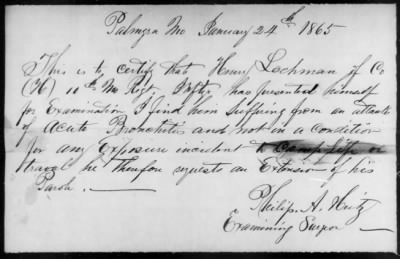 Palmyra Mo January 24th 1865
This is to certify that Henry Lochman of Co
(H) 10th Mo Regt. has presented himself
for Examination I find him suffering from an attack
of Acute Bronchitis and not in a condition
for any Exposure incident to Camp life or
travel he therefore requests an Extension of his
Parole.
Philip A. Heitz
Examining Surgeon